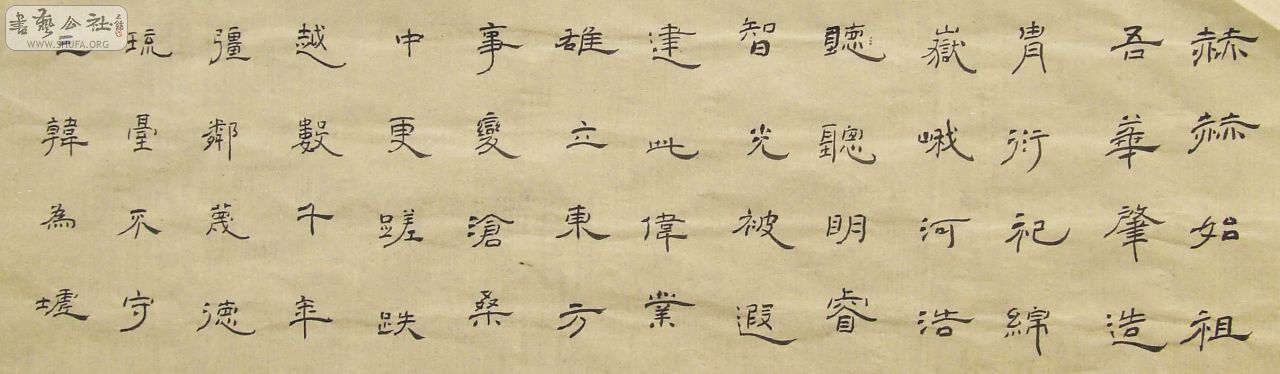 赫赫始祖
吾華肇造
冑衍祀綿
嶽峨河浩
聽聰明睿
智光被遐
建此偉業
雄立東方
事變滄桑
中更蹉跌
越數千年
彊鄰蔑德
琉臺不守
韓為墟
書藝公社
WWW.SHUFA.ORG